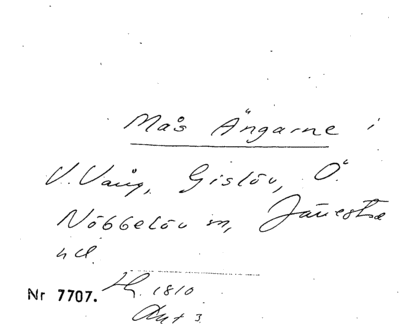 Mås Ängarne i
V. Vång, Gislöv, Ö.
Nöbbelöv m, Järrestad
hd.
Nr 7707. 1810
Akt 3